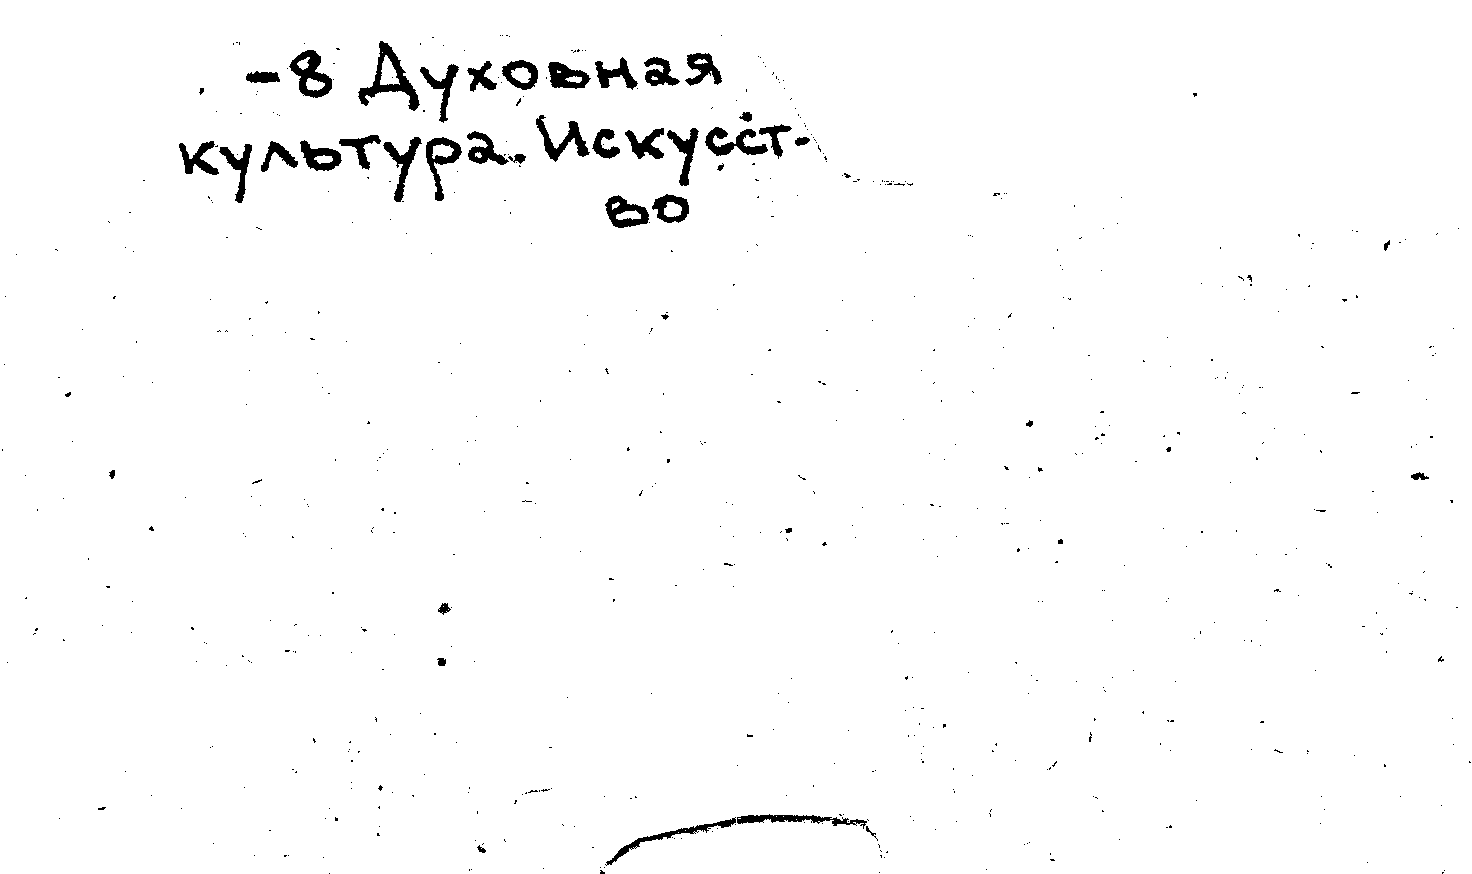 -8 Духовная
культура. Искусст-
во